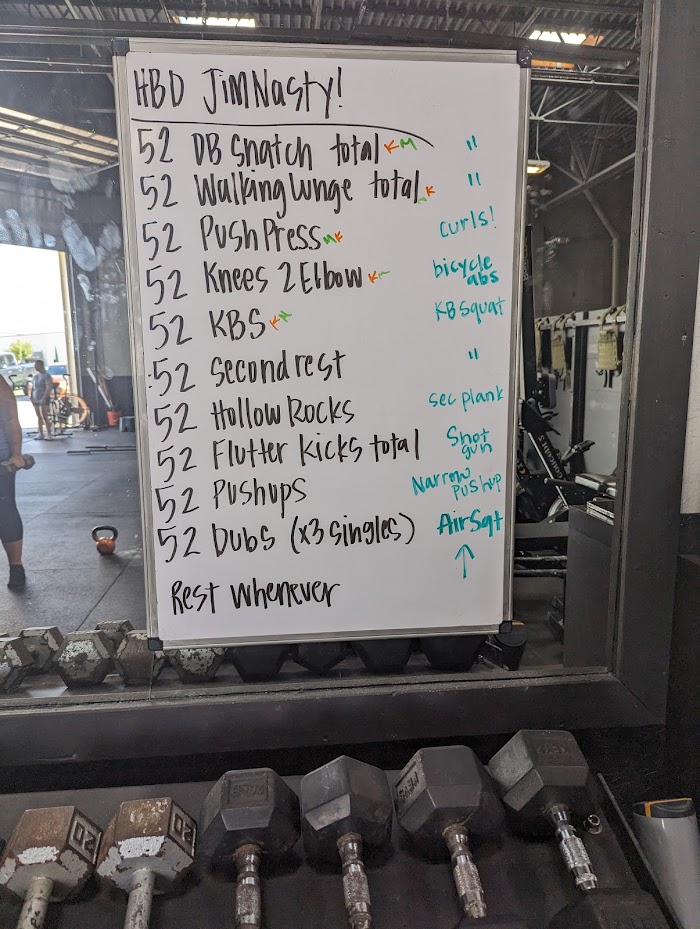 HBD JimNasty!
52 DB Snatch total KM "
52 Walking lunge total K "
52 Push Press MK curls!
52 Knees 2 Elbow K bicycle abs
52 KBS KM KB Squat
:52 Second rest "
52 Hollow Rocks sec plank
52 Flutter kicks total Shot gun
52 Pushups Narrow Pushup
52 Dubs (x3 singles) AirSqt
↑
Rest Whenever
20
20